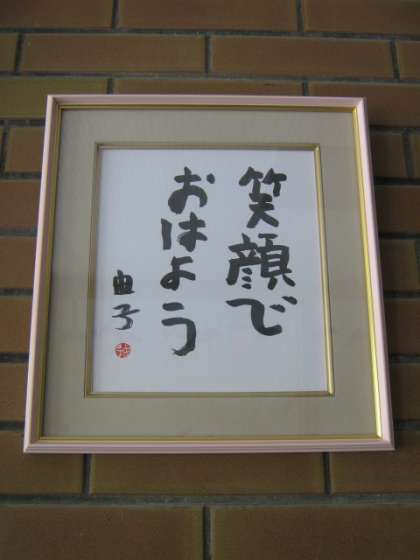 笑顔で
おはよう
由子